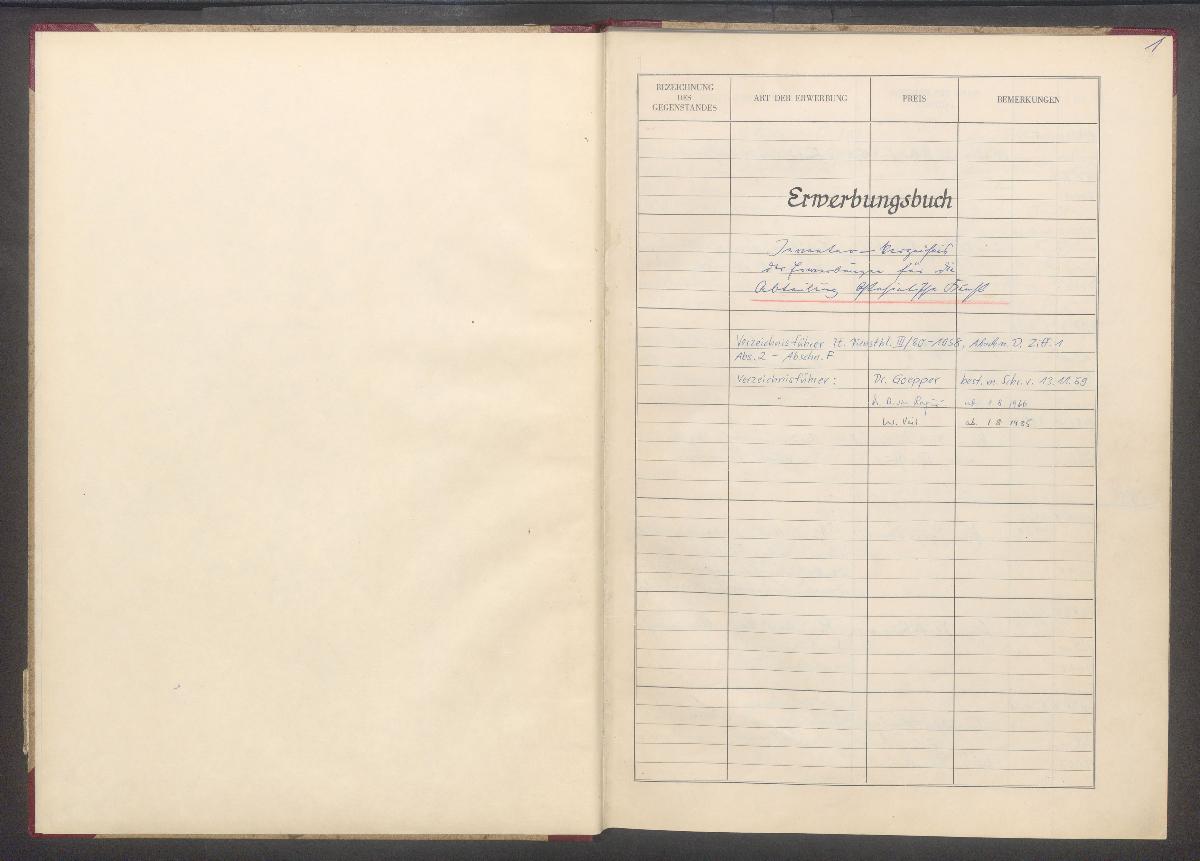 1
BEZEICHNUNG
DES
GEGENSTANDES
ART DER ERWERBUNG
PREIS
BEMERKUNGEN
Erwerbungsbuch
Inventar-Verzeichnis
der Erwerbungen für die
Abteilung Ostasiatische Kunst
Verzeichnisführer lt. Dienstbl. III/60-1958, Abschn. D. Ziff. 1
Abs. 2 - Abschn. F
Verzeichnisführer: Dr. Goepper best. m. Schr. v. 13.11.59
Dr. B. von ab 1.8.1966
ab. 1 8 1985